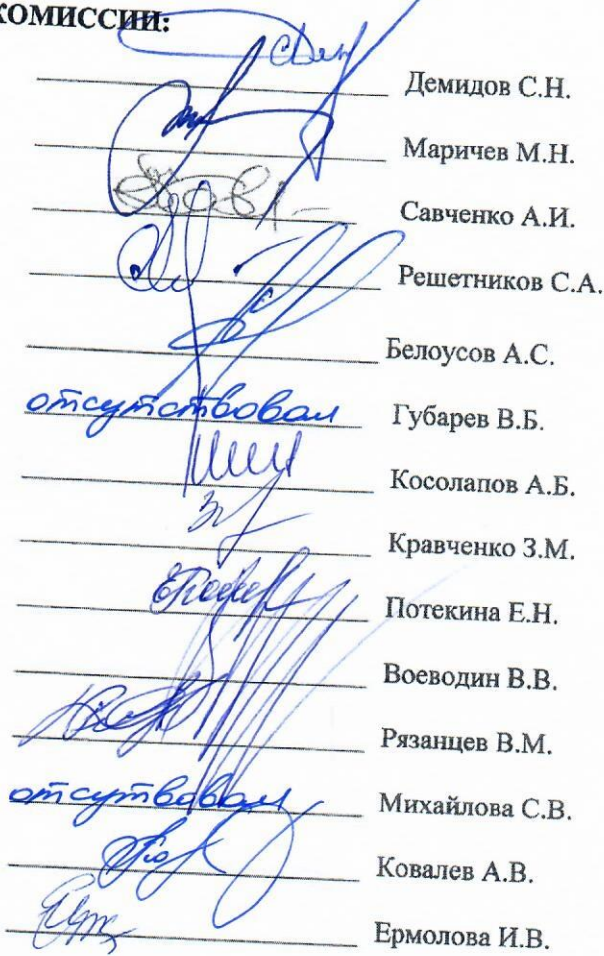 КОМИССИИ:
Демидов С.Н.
Маричев М.Н.
Савченко А.И.
Решетников С.А.
Белоусов А.С.
отсутствовал Губарев В.Б.
Косолапов А.Б.
Кравченко З.М.
Потекина Е.Н.
Воеводин В.В.
Рязанцев В.М.
отсутвовал Михайлова С.В.
Ковалев А.В.
Ермолова И.В.